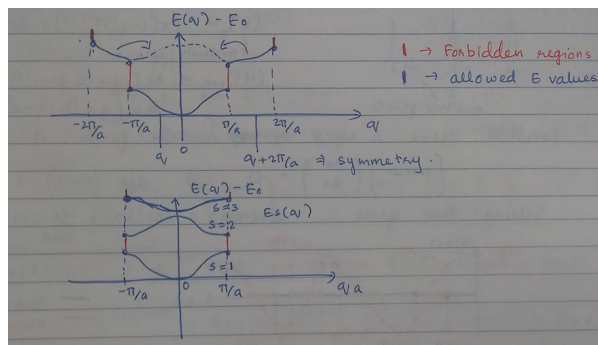 E(q) - E₀
| → Forbidden regions
| → allowed E values
-2π/a -π/a 0 π/a 2π/a q
q q+2π/a ⇒ symmetry.
E(q) - E₀
s=3 Es(q)
s=2
s=1
-π/a 0 π/a qa